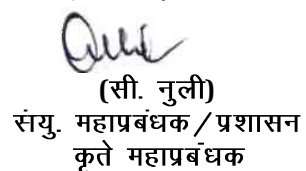 (सी. नुली)
संयु. महाप्रबंधक/प्रशासन
कृते महाप्रबंधक